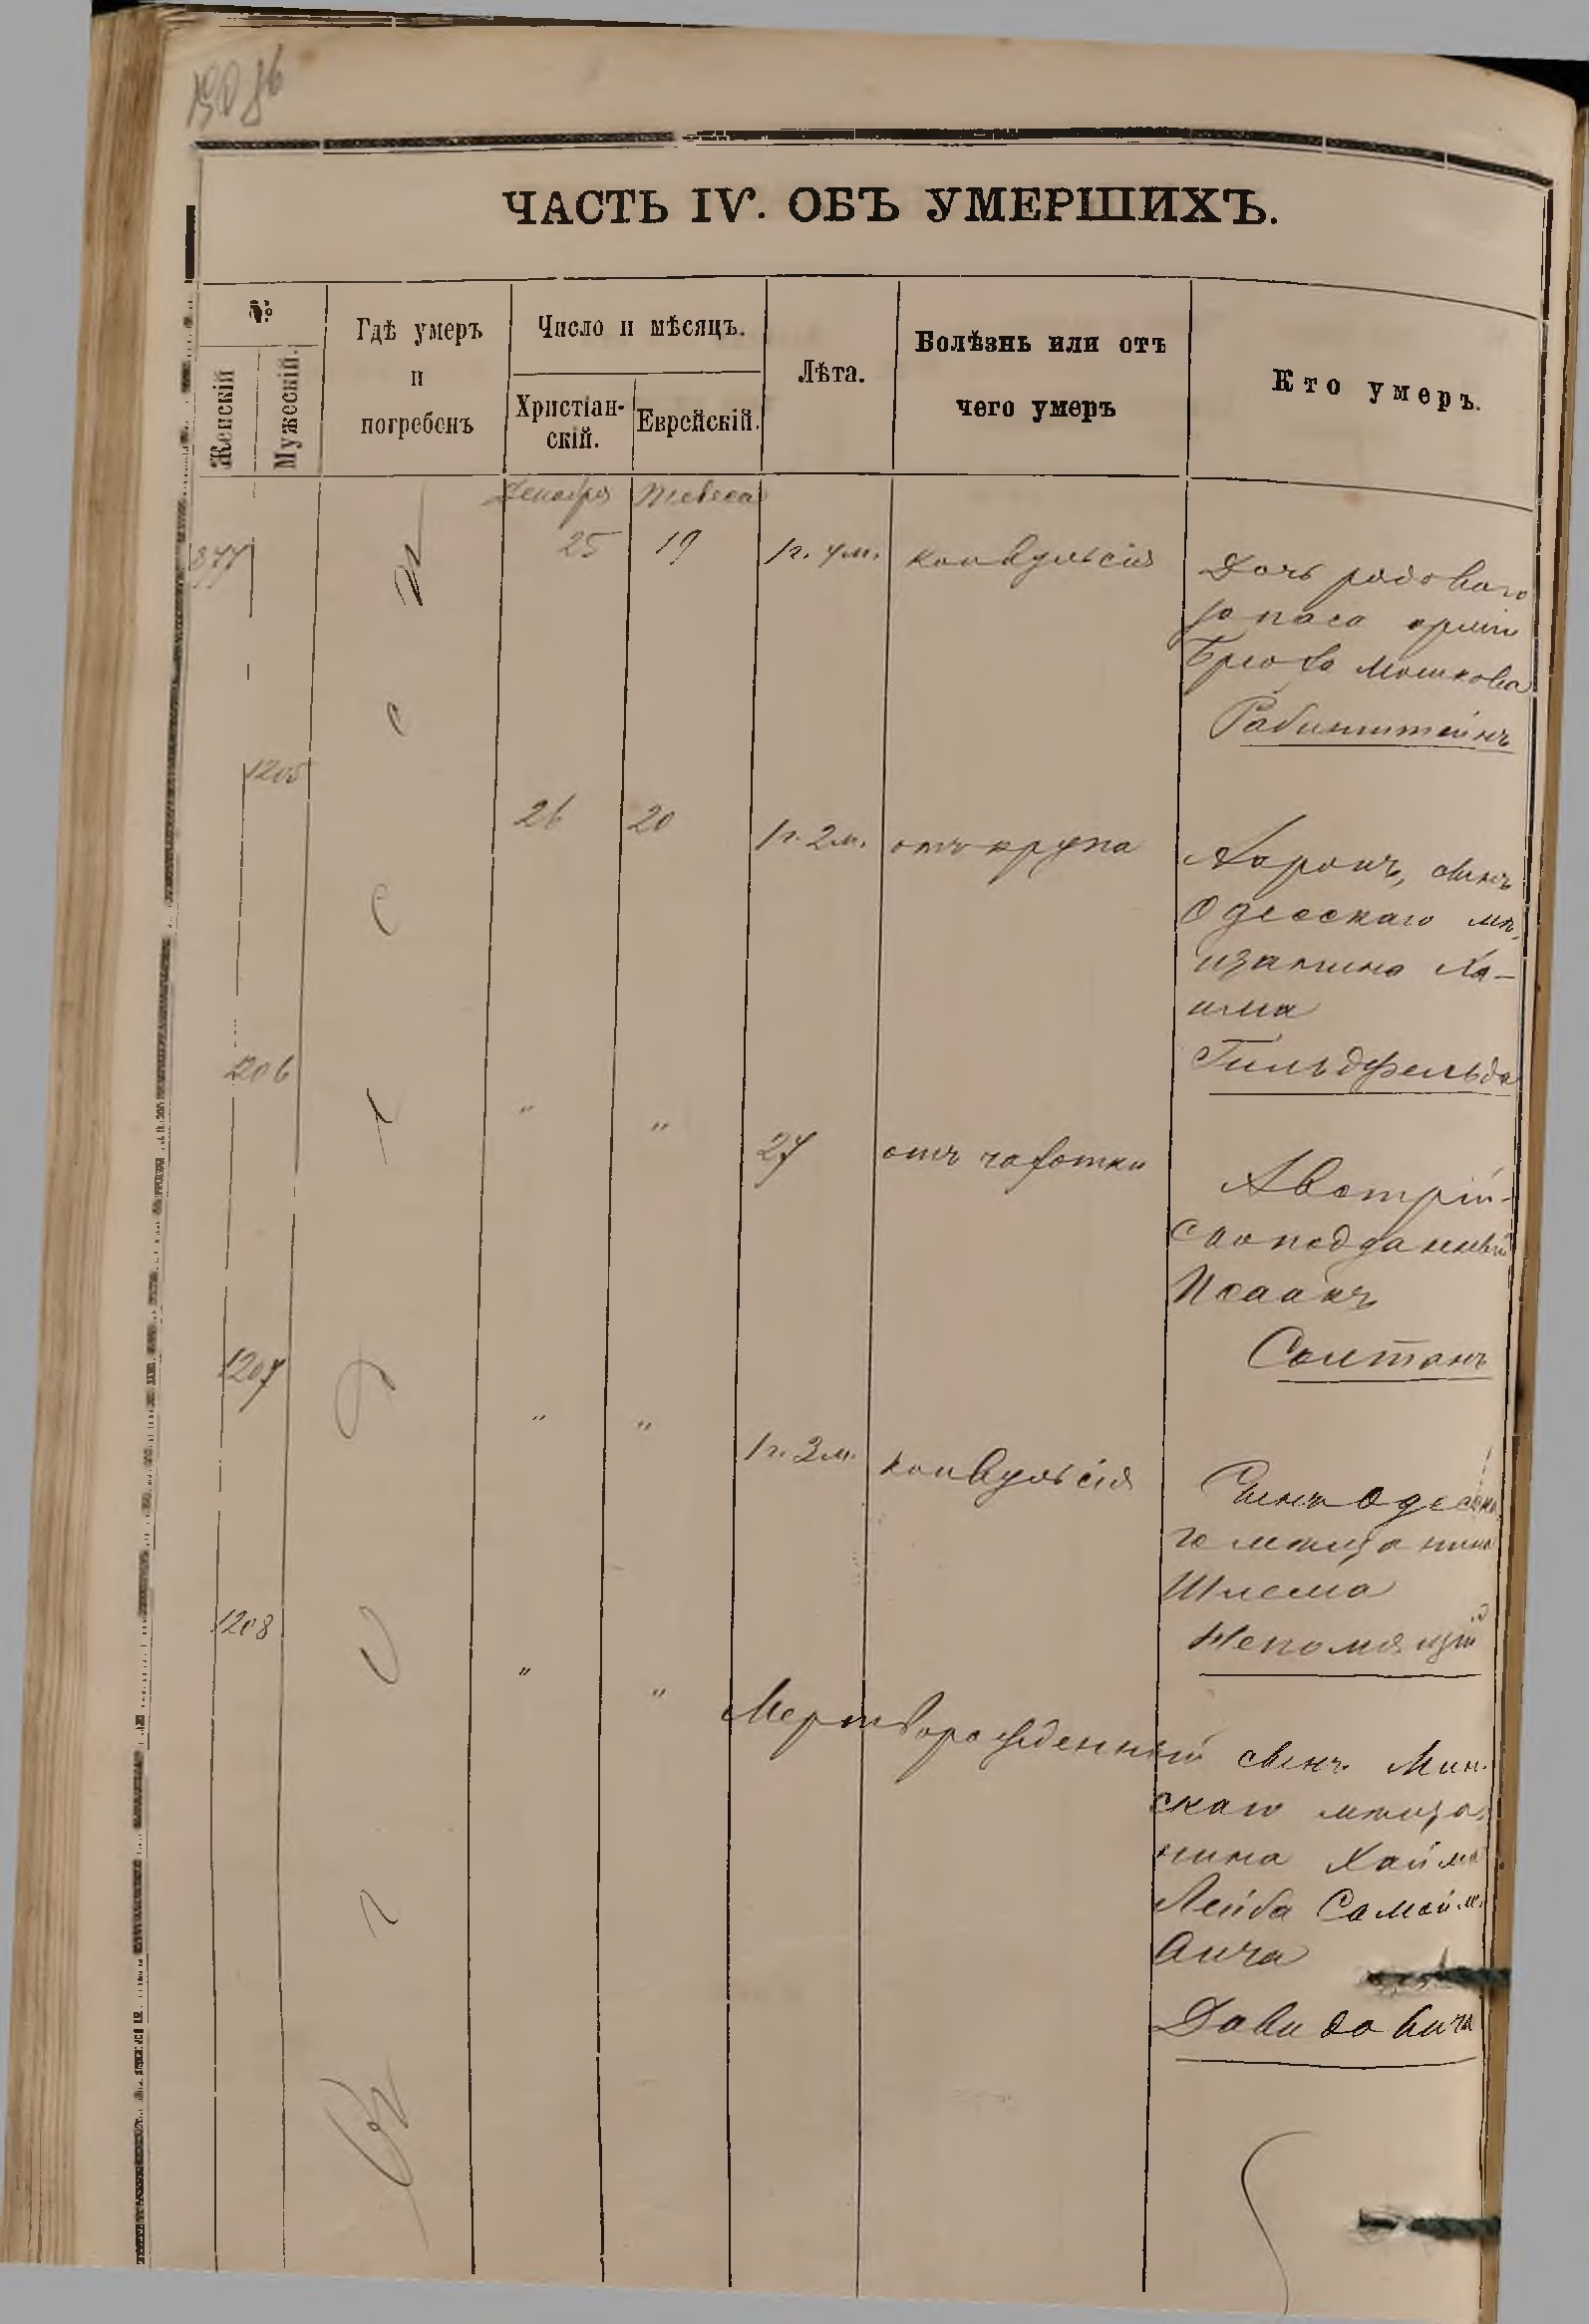 ЧАСТЬ IV. ОБЪ УМЕРШИХЪ.
№
Женскій
Мужескій.
Гдѣ умеръ
и
погребенъ
Число и мѣсяцъ.
Христіан-
скій.
Еврейскій.
Лѣта.
Болѣзнь или отъ
чего умеръ
Кто умеръ.
Декабря Тевеса
877 25 19 1 г. 4 м. конвульсія Дочь рядоваго
запаса арміи
Мошкова
Рабинштейнъ
1205 26 20 1 г. 2 м. отъ крупа Аронъ, сынъ
Одесскаго мѣ-
щанина Ха-
има
Гильдфельда
1206 " " 27 отъ чахотки Австрій-
скоподданный
Исаакъ
Солтанъ
1207 " " 1 г. 3 м. конвульсія Сынъ Одесска
го мѣщанина
Шлема
Непомящій
1208 " " Мертворожденный сынъ Мин-
скаго мѣща-
нина Хайма
Лейба
Давидовича